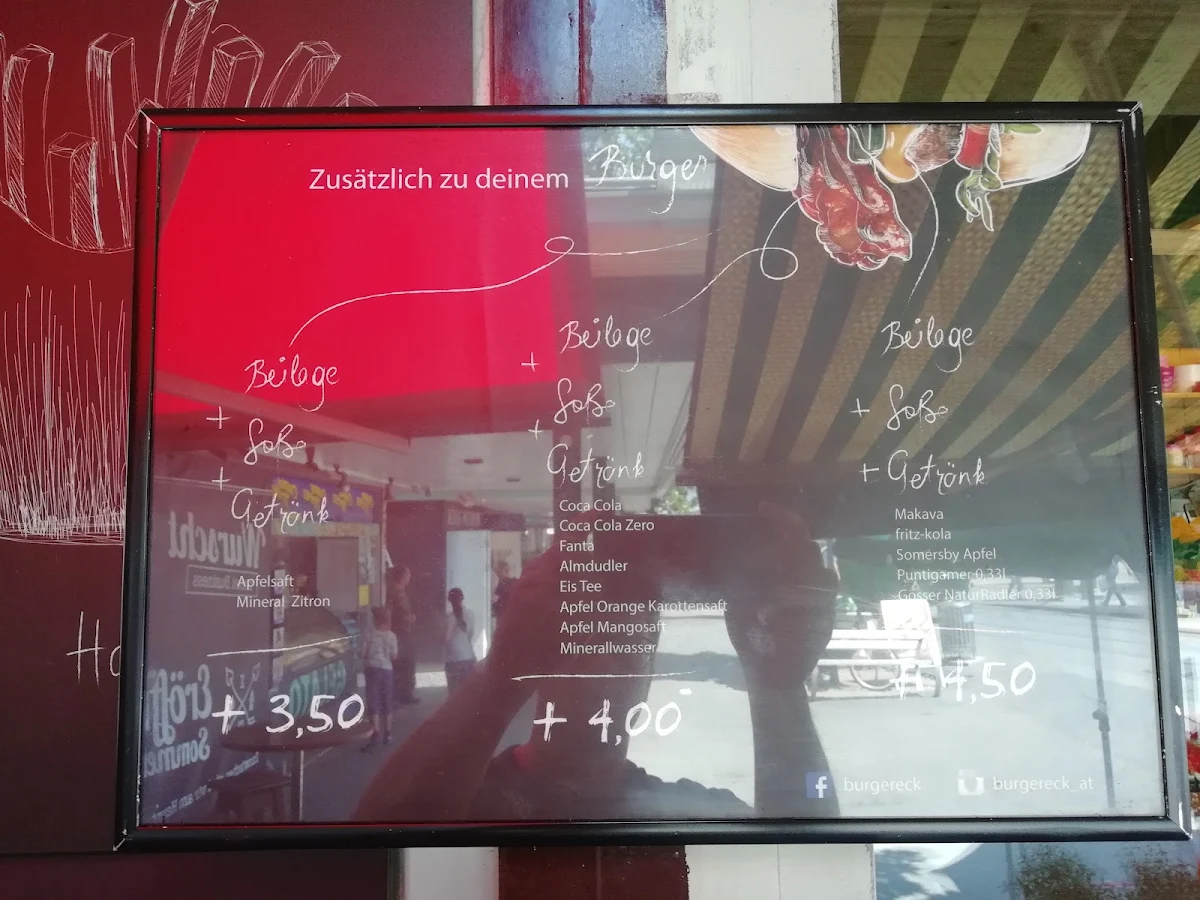 Zusätzlich zu deinem Burger
Beilage
+ Soße
+ Getränk
Apfelsaft
Mineral Zitron
+ 3,50
Beilage
+ Soße
+ Getränk
Coca Cola
Coca Cola Zero
Fanta
Almdudler
Eis Tee
Apfel Orange Karottensaft
Apfel Mangosaft
Minerallwasser
+ 4,00
Beilage
+ Soße
+ Getränk
Makava
fritz-kola
Somersby Apfel
Puntigamer 0,33l
Gösser NaturRadler 0,33l
+ 4,50
burgereck
burgereck_at
Wurscht